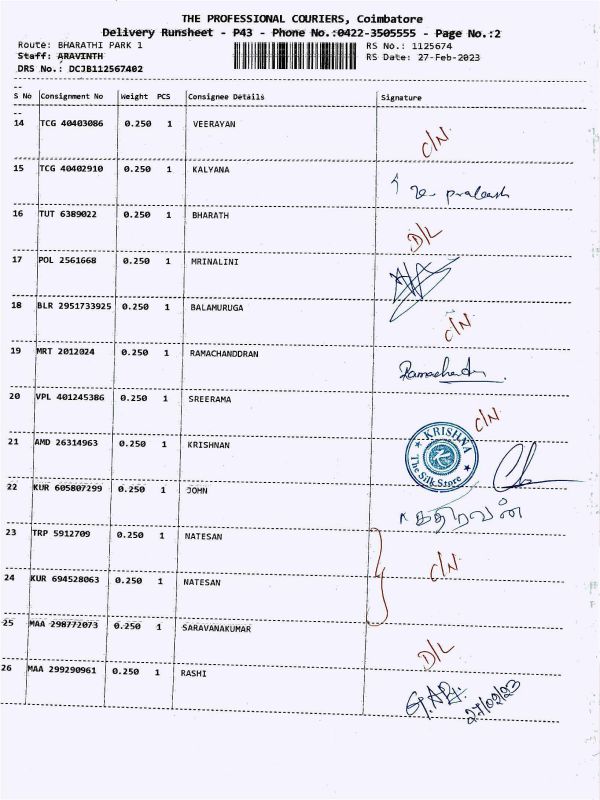 THE PROFESSIONAL COURIERS, Coimbatore
Delivery Runsheet - P43 - Phone No.:0422-3505555 - Page No.:2
Route: BHARATHI PARK 1 RS No.: 1125674
Staff: ARAVINTH RS Date: 27-Feb-2023
DRS No.: DCJB112567402
--
S No Consignment No Weight PCS Consignee Details Signature
--
14 TCG 40403086 0.250 1 VEERAYAN C/N
15 TCG 40402910 0.250 1 KALYANA
prakash
16 TUT 6389022 0.250 1 BHARATH D/L
17 POL 2561668 0.250 1 MRINALINI
18 BLR 2951733925 0.250 1 BALAMURUGA C/N
19 MRT 2012024 0.250 1 RAMACHANDDRAN
20 VPL 401245386 0.250 1 SREERAMA C/N
21 AMD 26314963 0.250 1 KRISHNAN KRISHNA The Silk Store
22 KUR 605807299 0.250 1 JOHN
கதிரவன்
23 TRP 5912709 0.250 1 NATESAN C/N
24 KUR 694528063 0.250 1 NATESAN
25 MAA 298772073 0.250 1 SARAVANAKUMAR D/L
26 MAA 299290961 0.250 1 RASHI 27/02/23